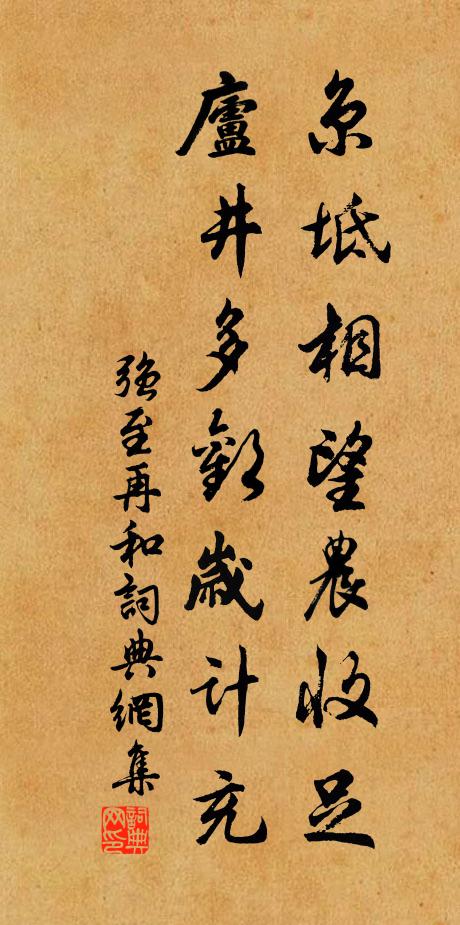 京坻相望農收足
廬井多歡歲計充
強至再和詞典網集
詞典網印